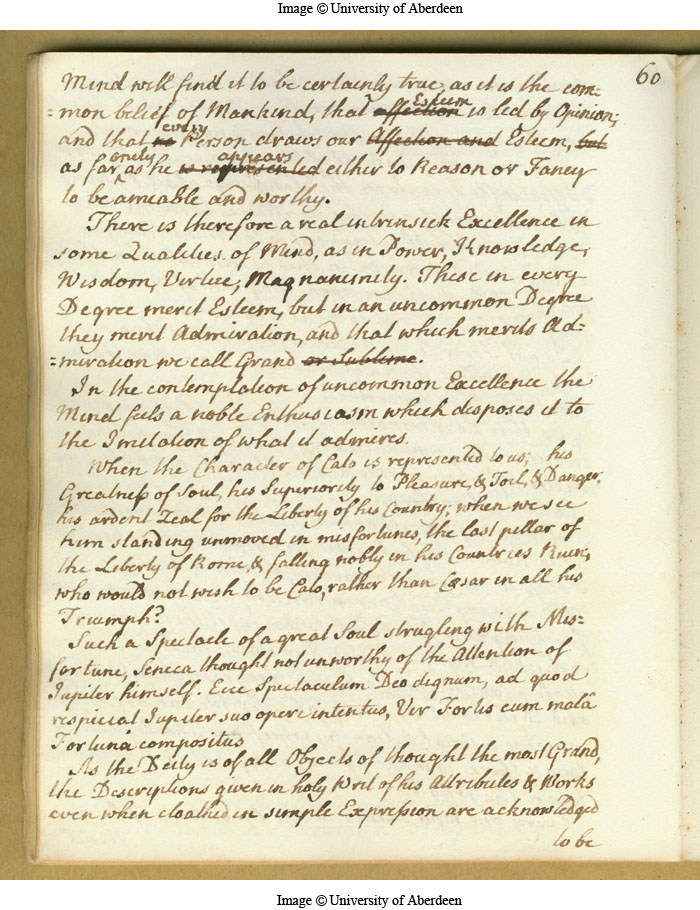 Image © University of Aberdeen
60
Mind will find it to be certainly true, as it is the com-
=mon belief of Mankind, that affection Esteem is led by Opinion;
and that no every Person draws our Affection and Esteem, but
as far only as he is represented appears either to Reason or Fancy
to be amiable and worthy.
There is therefore a real intrinsick Excellence in
some Qualities of Mind, as in Power, Knowledge,
Wisdom, Virtue, Magnanimity. These in every
Degree merit Esteem, but in an uncommon Degree
they merit Admiration, and that which merits Ad=
=miration we call Grand or Sublime.
In the contemplation of uncommon Excellence the
Mind feels a noble Enthusiasm which disposes it to
the Imitation of what it admires.
When the Character of Cato is represented to us; his
Greatness of Soul, his Superiority to Pleasure, & Toil, & Danger,
his ardent Zeal for the Liberty of his Country; when we see
him standing unmoved in misfortunes, the last pillar of
the Liberty of Rome, & falling nobly in his Countries Ruin,
who would not wish to be Cato, rather than Cæsar in all his
Triumph?
Such a Spectacle of a great Soul strugling with Mis=
fortune, Seneca thought not unworthy of the Attention of
Jupiter himself. Ecce Spectaculum Deo dignum, ad quod
respiciat Jupiter suo operi intentus, Vir Fortis cum malâ
Fortuna compositus
As the Deity is of all Objects of thought the most Grand,
the Descriptions given in holy Writ of his Attributes & Works
even when cloathed in simple Expression are acknowledged
to be
Image © University of Aberdeen